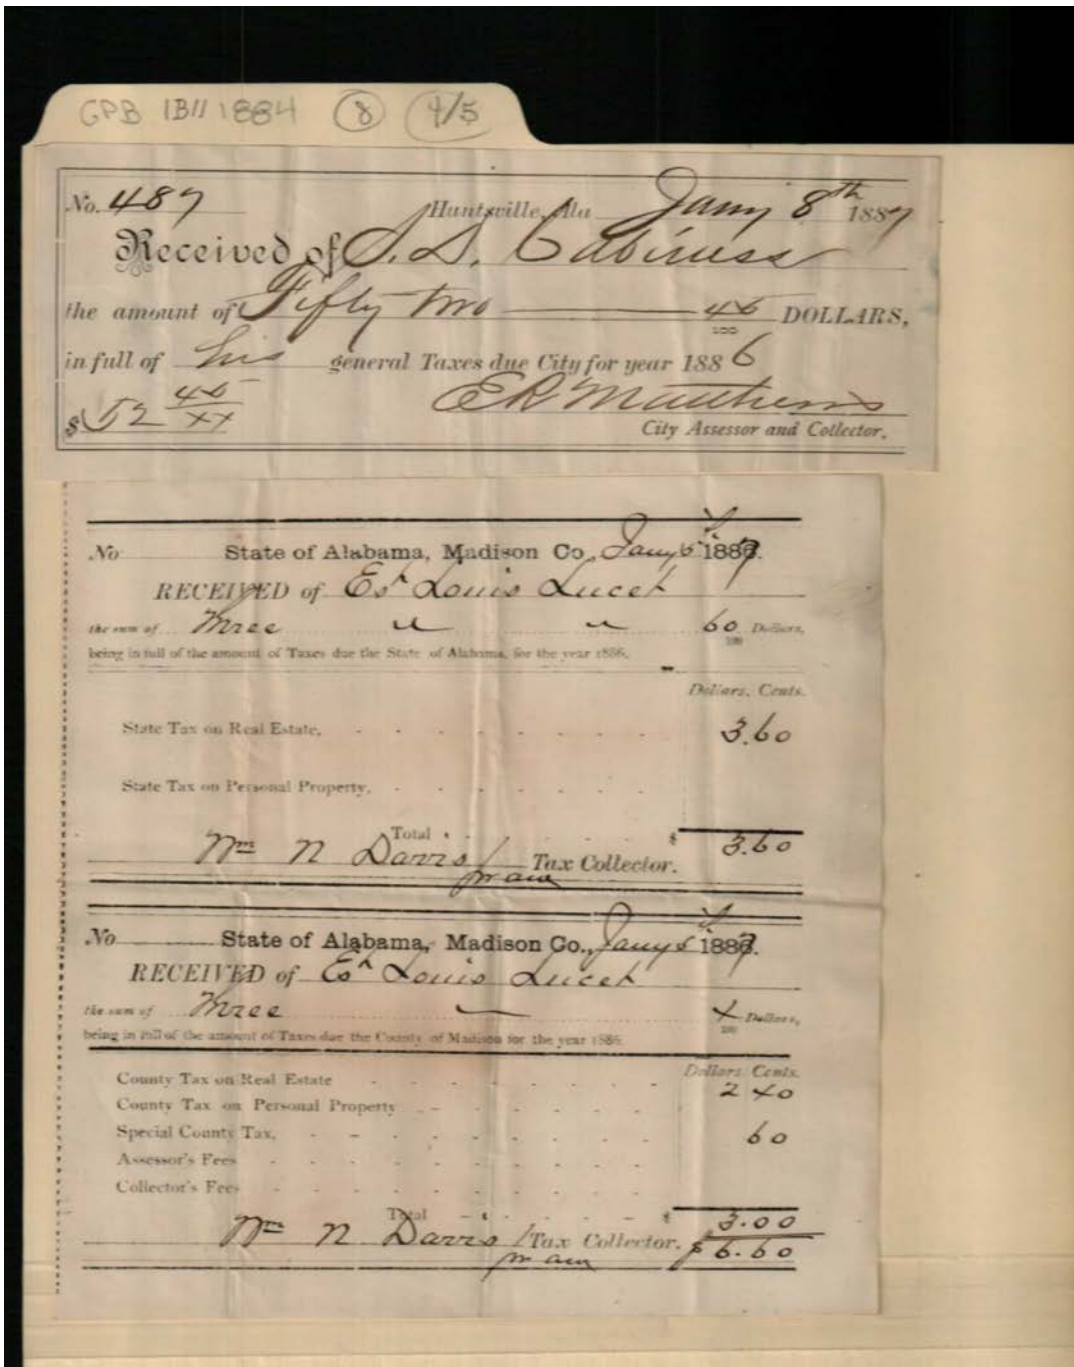 GPB IBII 1884 8 4/5
No. 487 Huntsville, Ala Jany 8th 1887
Received of S. D. Cabiness
the amount of Fifty two 45/100 DOLLARS,
in full of his general Taxes due City for year 1886
$ 52 45/xx E R Matthews
City Assessor and Collector.
No State of Alabama, Madison Co, Jany 1887.
RECEIVED of Est Louis Lucet
the sum of Three " " 60/100 Dollars,
being in full of the amount of Taxes due the State of Alabama, for the year 1886.
Dollars. Cents.
State Tax on Real Estate, 3.60
State Tax on Personal Property,
Total $ 3.60
Wm N Davis / Tax Collector.
No State of Alabama, Madison Co., Jany 1887.
RECEIVED of Est Louis Lucet
the sum of Three x/100 Dollars,
being in full of the amount of Taxes due the County of Madison for the year 1886.
Dollars. Cents.
County Tax on Real Estate 2 40
County Tax on Personal Property
Special County Tax, 60
Assessor's Fees
Collector's Fees
Total $ 3.00
Wm N Davis / Tax Collector. $ 6.60